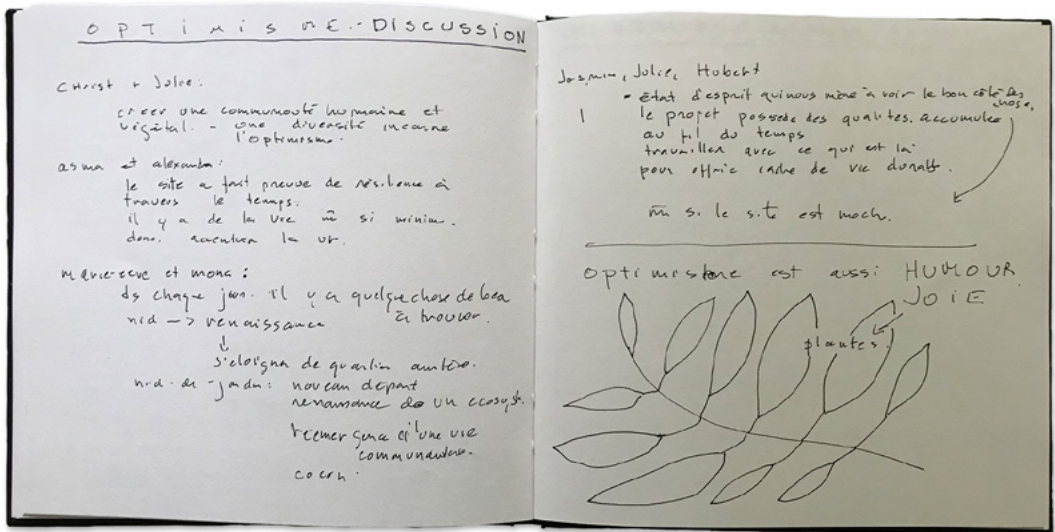 OPTIMISME - DISCUSSION
Christ + Jolie:
créer une communauté humaine et
végétal. - une diversité incarne
l'optimisme.
asma et alexandra:
le site a fait preuve de résilience à
travers le temps.
il y a de la vie m̄ si minim.
donc. accentuer la
marie-eve et mona:
ds chaque jour. il y a quelque chose de beau
à trouver.
nid -> renaissance
↓
s'eloigner de quartier austère.
nid-de-jardin: nouveau départ
renaissance de un ecosyst.
réemergence d'une vie
communautaire.
Jasmin, Jolie, Hubert
- état d'esprit qui nous mène à voir le bon côté des
choses,
le projet possede des qualités. accumulée
au fil du temps
travailler avec ce qui est là
pour offrir cadre de vie durab.
m̄ si le site est moch.
optimisme est aussi HUMOUR
JOIE
plantes.